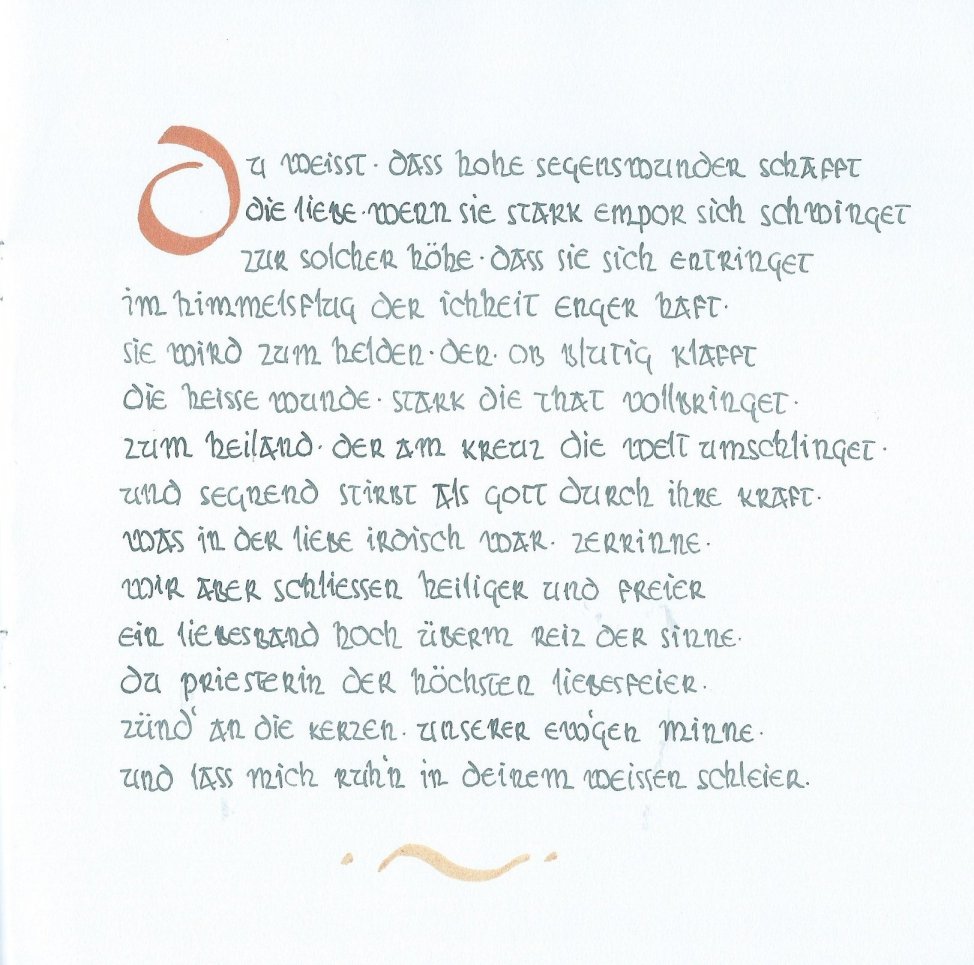 du weisst · dass hohe segenswunder schafft
die liebe · wenn sie stark empor sich schwinget
zur solcher höhe · dass sie sich entringet
im himmelsflug der ichheit enger haft ·
sie wird zum helden · der · ob blutig klafft
die heisse wunde · stark die that vollbringet ·
zum heiland · der am kreuz die welt umschlinget ·
und segnend stirbt als gott durch ihre kraft ·
was in der liebe irdisch war · zerrinne ·
wir aber schliessen heiliger und freier
ein liebesband hoch überm reiz der sinne ·
du priesterin der höchsten liebesfeier ·
zünd' an die kerzen · unserer ew'gen minne ·
und lass mich ruh'n in deinem weissen schleier ·